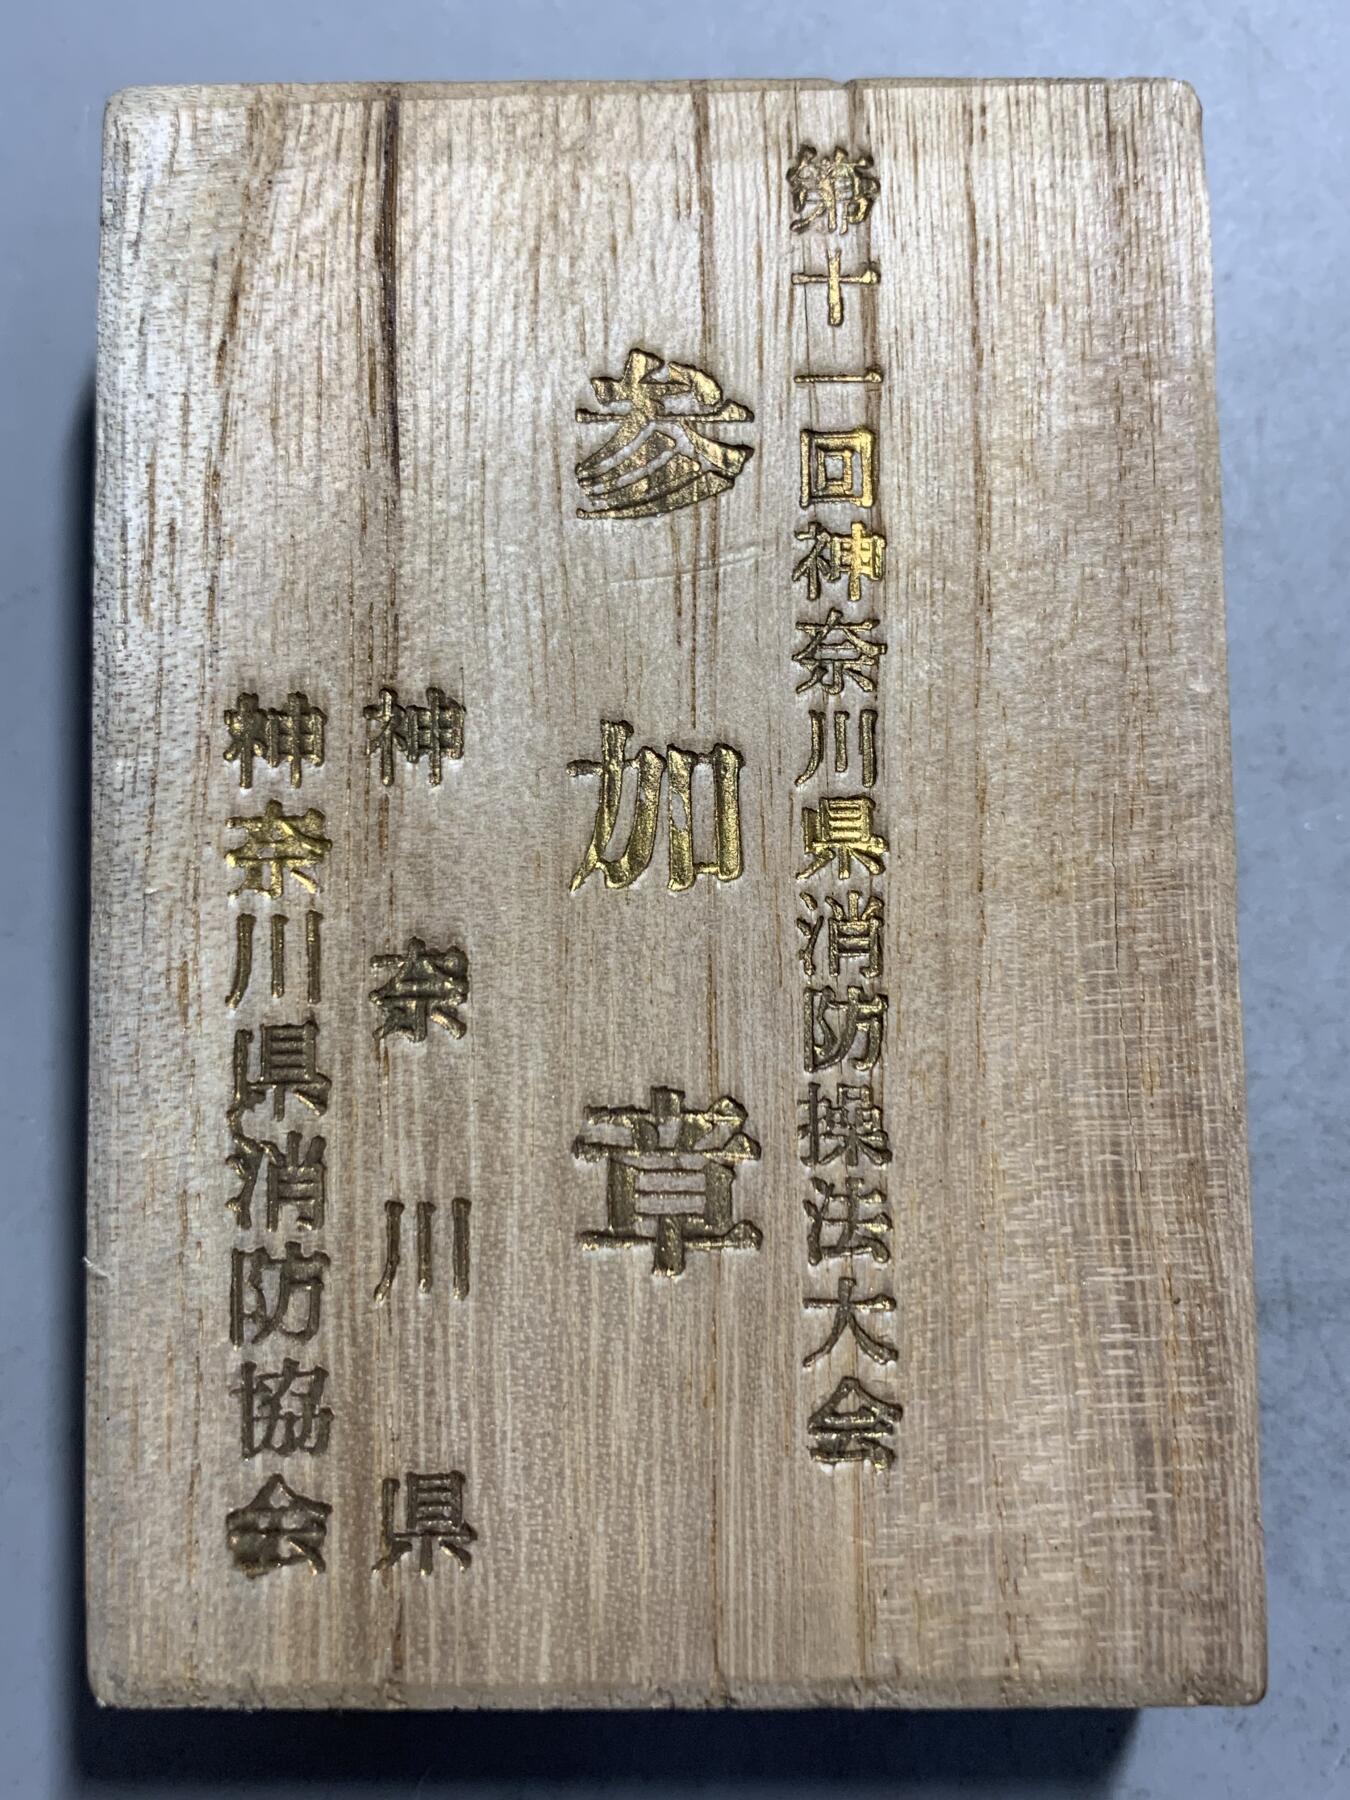 第十一回神奈川県消防操法大会
参加章
神奈川県
神奈川県消防協会